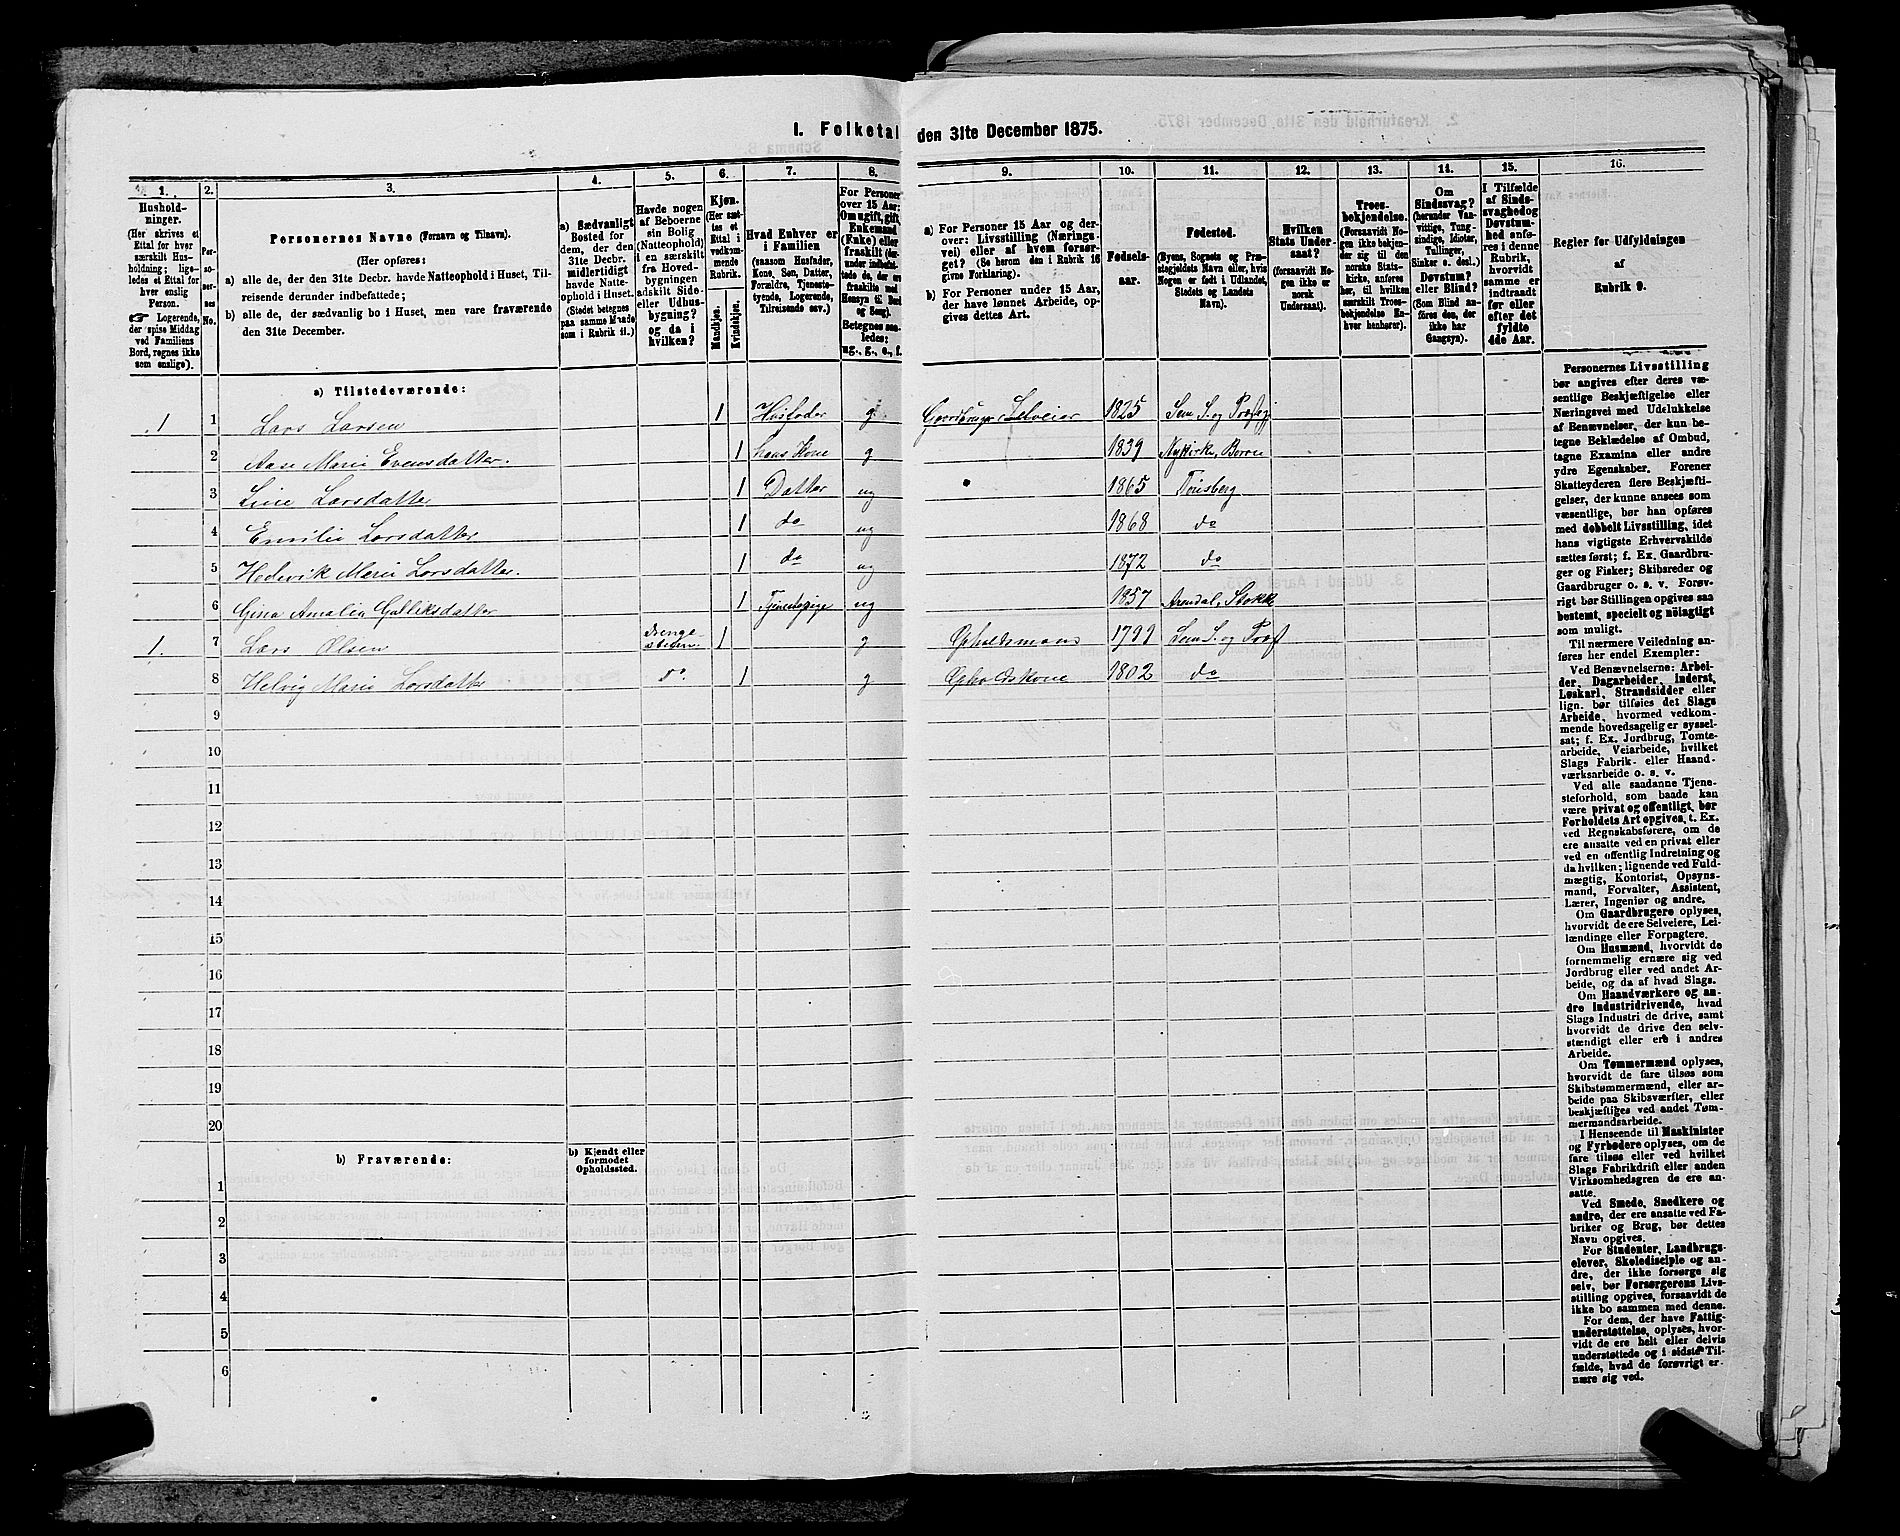 1. Folketal den 31te December 1875.
1.
Hushold-
ninger.
(Her skrives et
Ettal for hver
særskilt Hus-
holdning; lige-
ledes et Ettal for
hver enslig
Person.
☞ Logerende,
der spise Middag
ved Familiens
Bord, regnes ikke
som enslige).
2.
Per-
so-
ner-
nes
No.
3.
Personernes Navne (Fornavn og Tilnavn).
(Her opføres:
a) alle de, der den 31te Decbr. havde Natteophold i Huset, Til-
reisende derunder indbefattede;
b) alle de, der sædvanlig bo i Huset, men vare fraværende
den 31te December.
4.
a) Sædvanligt
Bosted for
dem, der den
31te Decbr.
midlertidigt
havde Natte-
ophold i Huset.
(Stedet betegnes
paa samme Maade
som i Rubrik 11.)
5.
Havde nogen
af Beboerne
sin Bolig
(Natteophold)
i en særskilt
fra Hoved-
bygningen
adskilt Side-
eller Udhus-
bygning?
og da i
hvilken?
6.
Kjøn.
(Her sæt-
tes et
Ettal i
vedkom-
mende
Rubrik.
Mandkjøn.
Kvindekjøn.
7.
Hvad Enhver er
i Familien
(saasom Husfader,
Kone, Søn, Datter,
Forældre, Tjeneste-
tyende, Logerende,
Tilreisende osv.)
8.
For Personer
over 15 Aar:
Om ugift, gift,
Enkemand
(Enke) eller
fraskilt (der-
under indbefat-
tede de, der ere
fraskilte med
Hensyn til Bord
og Seng).
Betegnes saa-
ledes:
ug., g., e., f.
9.
a) For Personer 15 Aar og der-
over: Livsstilling (Nærings-
vei) eller af hvem forsør-
get? (Se herom den i Rubrik 16
givne Forklaring).
b) For Personer under 15 Aar,
der have lønnet Arbeide, op-
gives dettes Art.
10.
Fødsels-
aar.
11.
Fødested.
(Byens, Sognets og Præ-
stegjeldets Navn eller, hvis
Nogen er født i Udlandet,
Stedets og Landets
Navn).
12.
Hvilken
Stats Under-
saat?
(forsaavidt No-
gen ikke er
norsk
Undersaat).
13.
Troes-
bekjendelse.
(Forsaavidt No-
gen ikke bekjen-
der sig til den
norske Stats-
kirke, anføres
her, til hvilken
særskilt Troes-
bekjendelse En-
hver henhører).
14.
Om
Sindssvag?
(herunder Van-
vittige, Tung-
sindige, Idioter,
Tullinger,
Sinker o. desl.)
Døvstum?
eller Blind?
(Som Blind an-
føres den, der
ikke har
Gangsyn).
15.
I Tilfælde
af Sinds-
svaghed og
Døvstum-
hed anfø-
res i denne
Rubrik,
hvorvidt
samme er
indtraadt
før eller
efter det
fyldte
4de Aar.
16.
Regler for Udfyldningen
af
Rubrik 9.
a) Tilstedeværende:
1 1 Lars Larsen 1 Husfader g Gaardbruger, Selveier 1825 Sem S. og Præstegj
2 Aase Marie Evensdatter. 1 hans Kone g 1839 Nykirke, Borre
3 Line Larsdatter 1 Datter ug 1865 Tønsberg
4 Emilie Larsdatter 1 do ug 1868 do
5 Hedevik Marie Larsdatter. 1 do ug 1872 do
6 Gina Amalia Gulliksdatter 1 Tjenestepige ug 1857 Arendal, Stokk
1. 7 Lars Olsen Drenge-stuen 1 g Opholdsmand 1799 Sem S. og Præst
8 Helvig Marie Larsdatter do. 1 g Opholdskone 1802 do
9
10
11
12
13
14
15
16
17
18
19
20
b) Fraværende:
b) Kjendt eller
formodet
Opholdssted.
1
2
3
4
5
6
Personernes Livsstilling
bør angives efter deres væ-
sentlige Beskjæftigelse eller
Næringsvei med Udelukkelse
af Benævnelser, der kun be-
tegne Beklædelse af Ombud,
tagne Examina eller andre
ydre Egenskaber. Forener
Skatteyderen flere Beskjæfti-
gelser, der kunne ansees som
væsentlige, bør han opføres
med dobbelt Livsstilling, idet
hans vigtigste Erhvervskilde
sættes først; f. Ex. Gaardbru-
ger og Fisker; Skibsreder og
Gaardbruger o. s. v. Forøv-
rigt bør Stillingen opgives saa
bestemt, specielt og nøiagtigt
som muligt.
Til nærmere Veiledning an-
føres her endel Exempler:
Ved Benævnelserne: Arbei-
der, Dagarbeider, Inderst,
Løskarl, Strandsidder eller
lign. bør tilføies det Slags
Arbeide, hvormed vedkom-
mende hovedsagelig er syssel-
sat; f. Ex. Jordbrug, Tomte-
arbeide, Veiarbeide, hvilket
Slags Fabrik- eller Haand-
værksarbeide o. s. v.
Ved alle saadanne Tjene-
steforhold, som baade kan
være privat og offentligt, bør
Forholdets Art opgives, t. Ex.
ved Regnskabsførere, om de
ere ansatte ved en privat eller
ved en offentlig Indretning og
da hvilken; lignende ved Fuld-
mægtig, Kontorist, Opsyns-
mand, Forvalter, Assistent,
Lærer, Ingeniør og andre.
Om Gaardbrugere oplyses,
hvorvidt de ere Selveiere, Lei-
lændinge eller Forpagtere.
Om Husmænd, hvorvidt de
fornemmelig ernære sig ved
Jordbrug eller ved andet Ar-
beide, og da af hvad Slags.
Om Haandværkere og an-
dre Industridrivende, hvad
Slags Industri de drive, samt
hvorvidt de drive den selv-
stændigt eller ere i andres
Arbeide.
Om Tømmermænd oplyses,
hvorvidt de fare tilsøs som
Skibstømmermænd, eller ar-
beide paa Skibsværfter, eller
beskjæftiges ved andet Tøm-
mermandsarbeide.
I Henseende til Maskinister
og Fyrbødere oplyses, om de
fare tilsøs eller ved hvilket
Slags Fabrikdrift eller anden
Virksomhedsgren de ere an-
satte.
Ved Smede, Snedkere og
andre, der ere ansatte ved Fa-
briker og Brug, bør dettes
Navn opgives.
For Studenter, Landbrugs-
elever, Skoledisciple og an-
dre, der ikke forsørge sig
selv, bør Forsørgerens Livs-
stilling opgives, forsaavidt de
ikke bo sammen med denne.
For dem, der have Fattig-
understøttelse, oplyses, hvor-
vidt de ere helt eller delvis
understøttede og i sidste Til-
fælde, hvad de forøvrigt er-
nære sig ved.